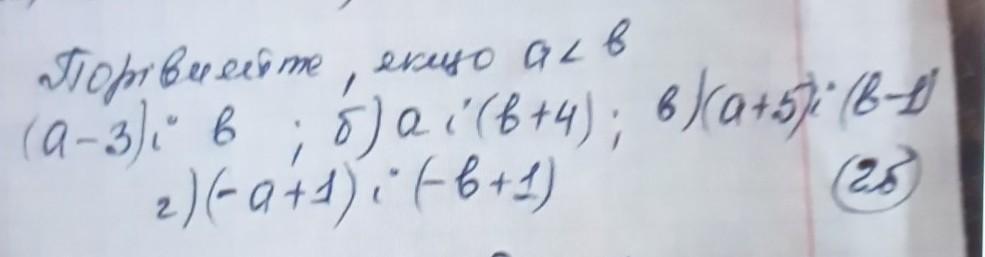 Порівняйте, якщо a < b
(a-3) i b ; б) a i (b+4); в) (a+5) i (b-1)
г) (-a+1) i (-b+1) (2б)